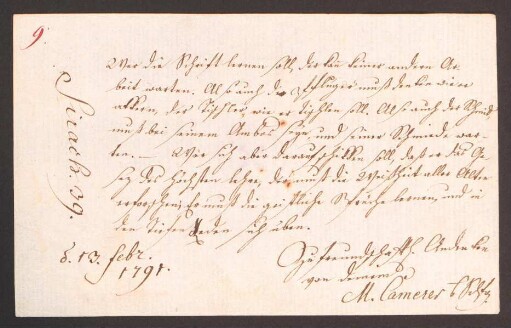 9.
Wer die Schrift lernen soll, der kan keiner andern Ar-
beit warten. Also auch der Pfluger muß denken wie er
akken, der Tischler, wie er tischlen soll. Also auch der Schmid
muß bei seinem Ambos seyn, und seiner Schmiede war-
ten. — Wer sich aber darauf schikken soll, daß er das Ge-
sez des Höchsten lehre, der muß die Weisheit aller Alten
erforschen; Er muß die geistliche Sprüche lernen, und in
den tiefen Reden sich üben.
Sirach. 39.
d. 13. Febr.
1791.
Zu freundschaftl. Andenken
von
M. Camerer